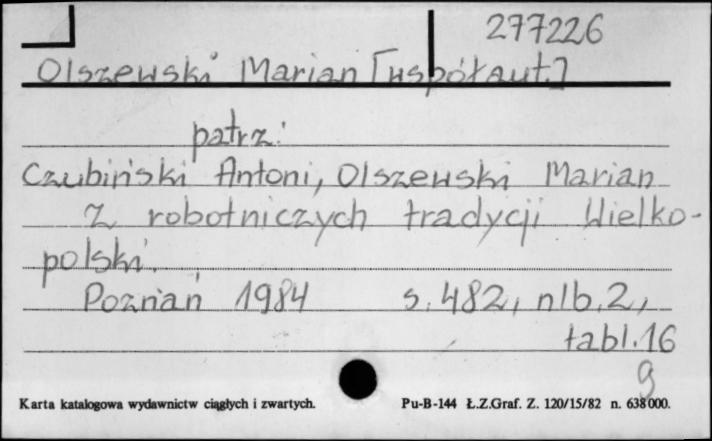 277226
Olszewski Marian [współaut.]
patrz:
Czubiński Antoni, Olszewski Marian
Z robotniczych tradycji Wielko-
polski.
Poznań 1984 s. 482, nlb. 2,
tabl. 16
9
Karta katalogowa wydawnictw ciągłych i zwartych. Pu-B-144 Ł.Z.Graf. Z. 120/15/82 n. 638000.